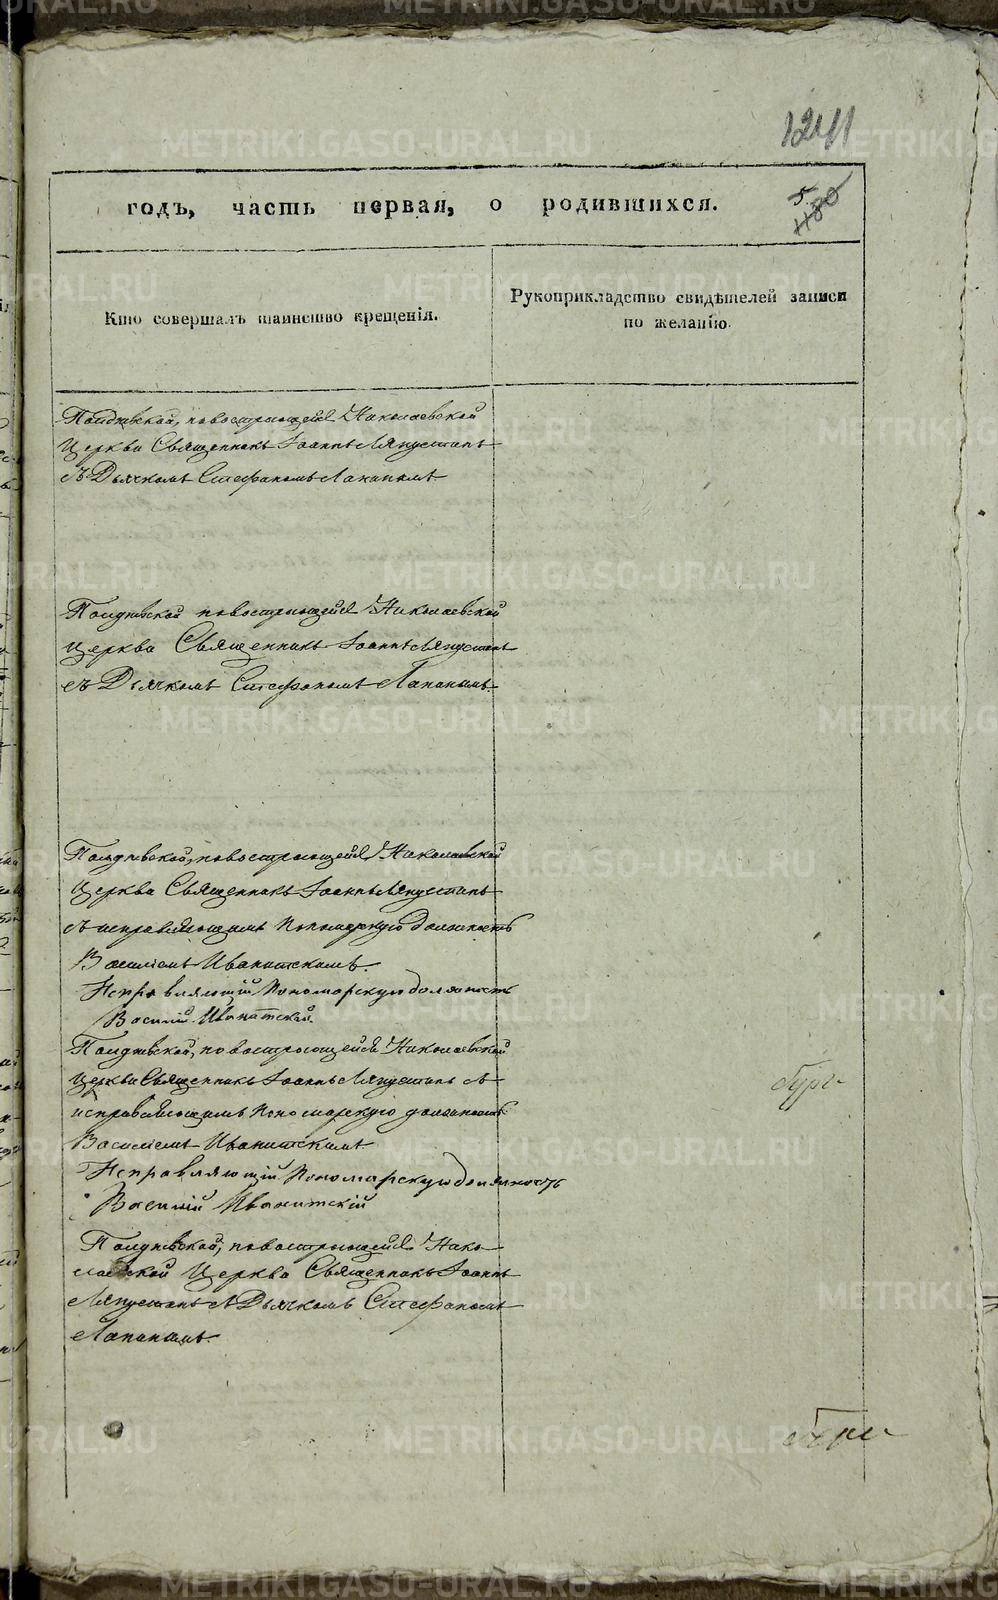 1241
годъ, часть первая, о родившихся.
5.
1180
Кто совершалъ таинство крещенія.
Рукоприкладство свидѣтелей записи
по желанію.
новостроющейся Николаевской
Церкви Священникъ Іоаннъ Ляпустинъ
съ Дьячкомъ Стефаномъ Лапинымъ
новостроющейся Николаевской
Церкви Священникъ Іоаннъ Ляпустинъ
съ Дьячкомъ Стефаномъ Лапинымъ
новостроющейся Николаевской
Церкви Священникъ Іоаннъ Ляпустинъ
съ исправляющимъ Пономарскую Должность
Василіемъ Иваницкимъ.
Исправляющій Пономарскую должность
Василій Иваницкой.
новостроющейся Николаевской
Церкви Священникъ Іоаннъ Ляпустинъ съ
исправляющимъ Пономарскую должность
Василіемъ Иваницкимъ
Исправляющій Пономарскую должность
Василій Иваницкій
новостроющейся Нико-
лаевской Церкви Священникъ Іоаннъ
Ляпустинъ съ Дьячкомъ Стефаномъ
Лапинымъ.
METRIKI.GASO-URAL.RU